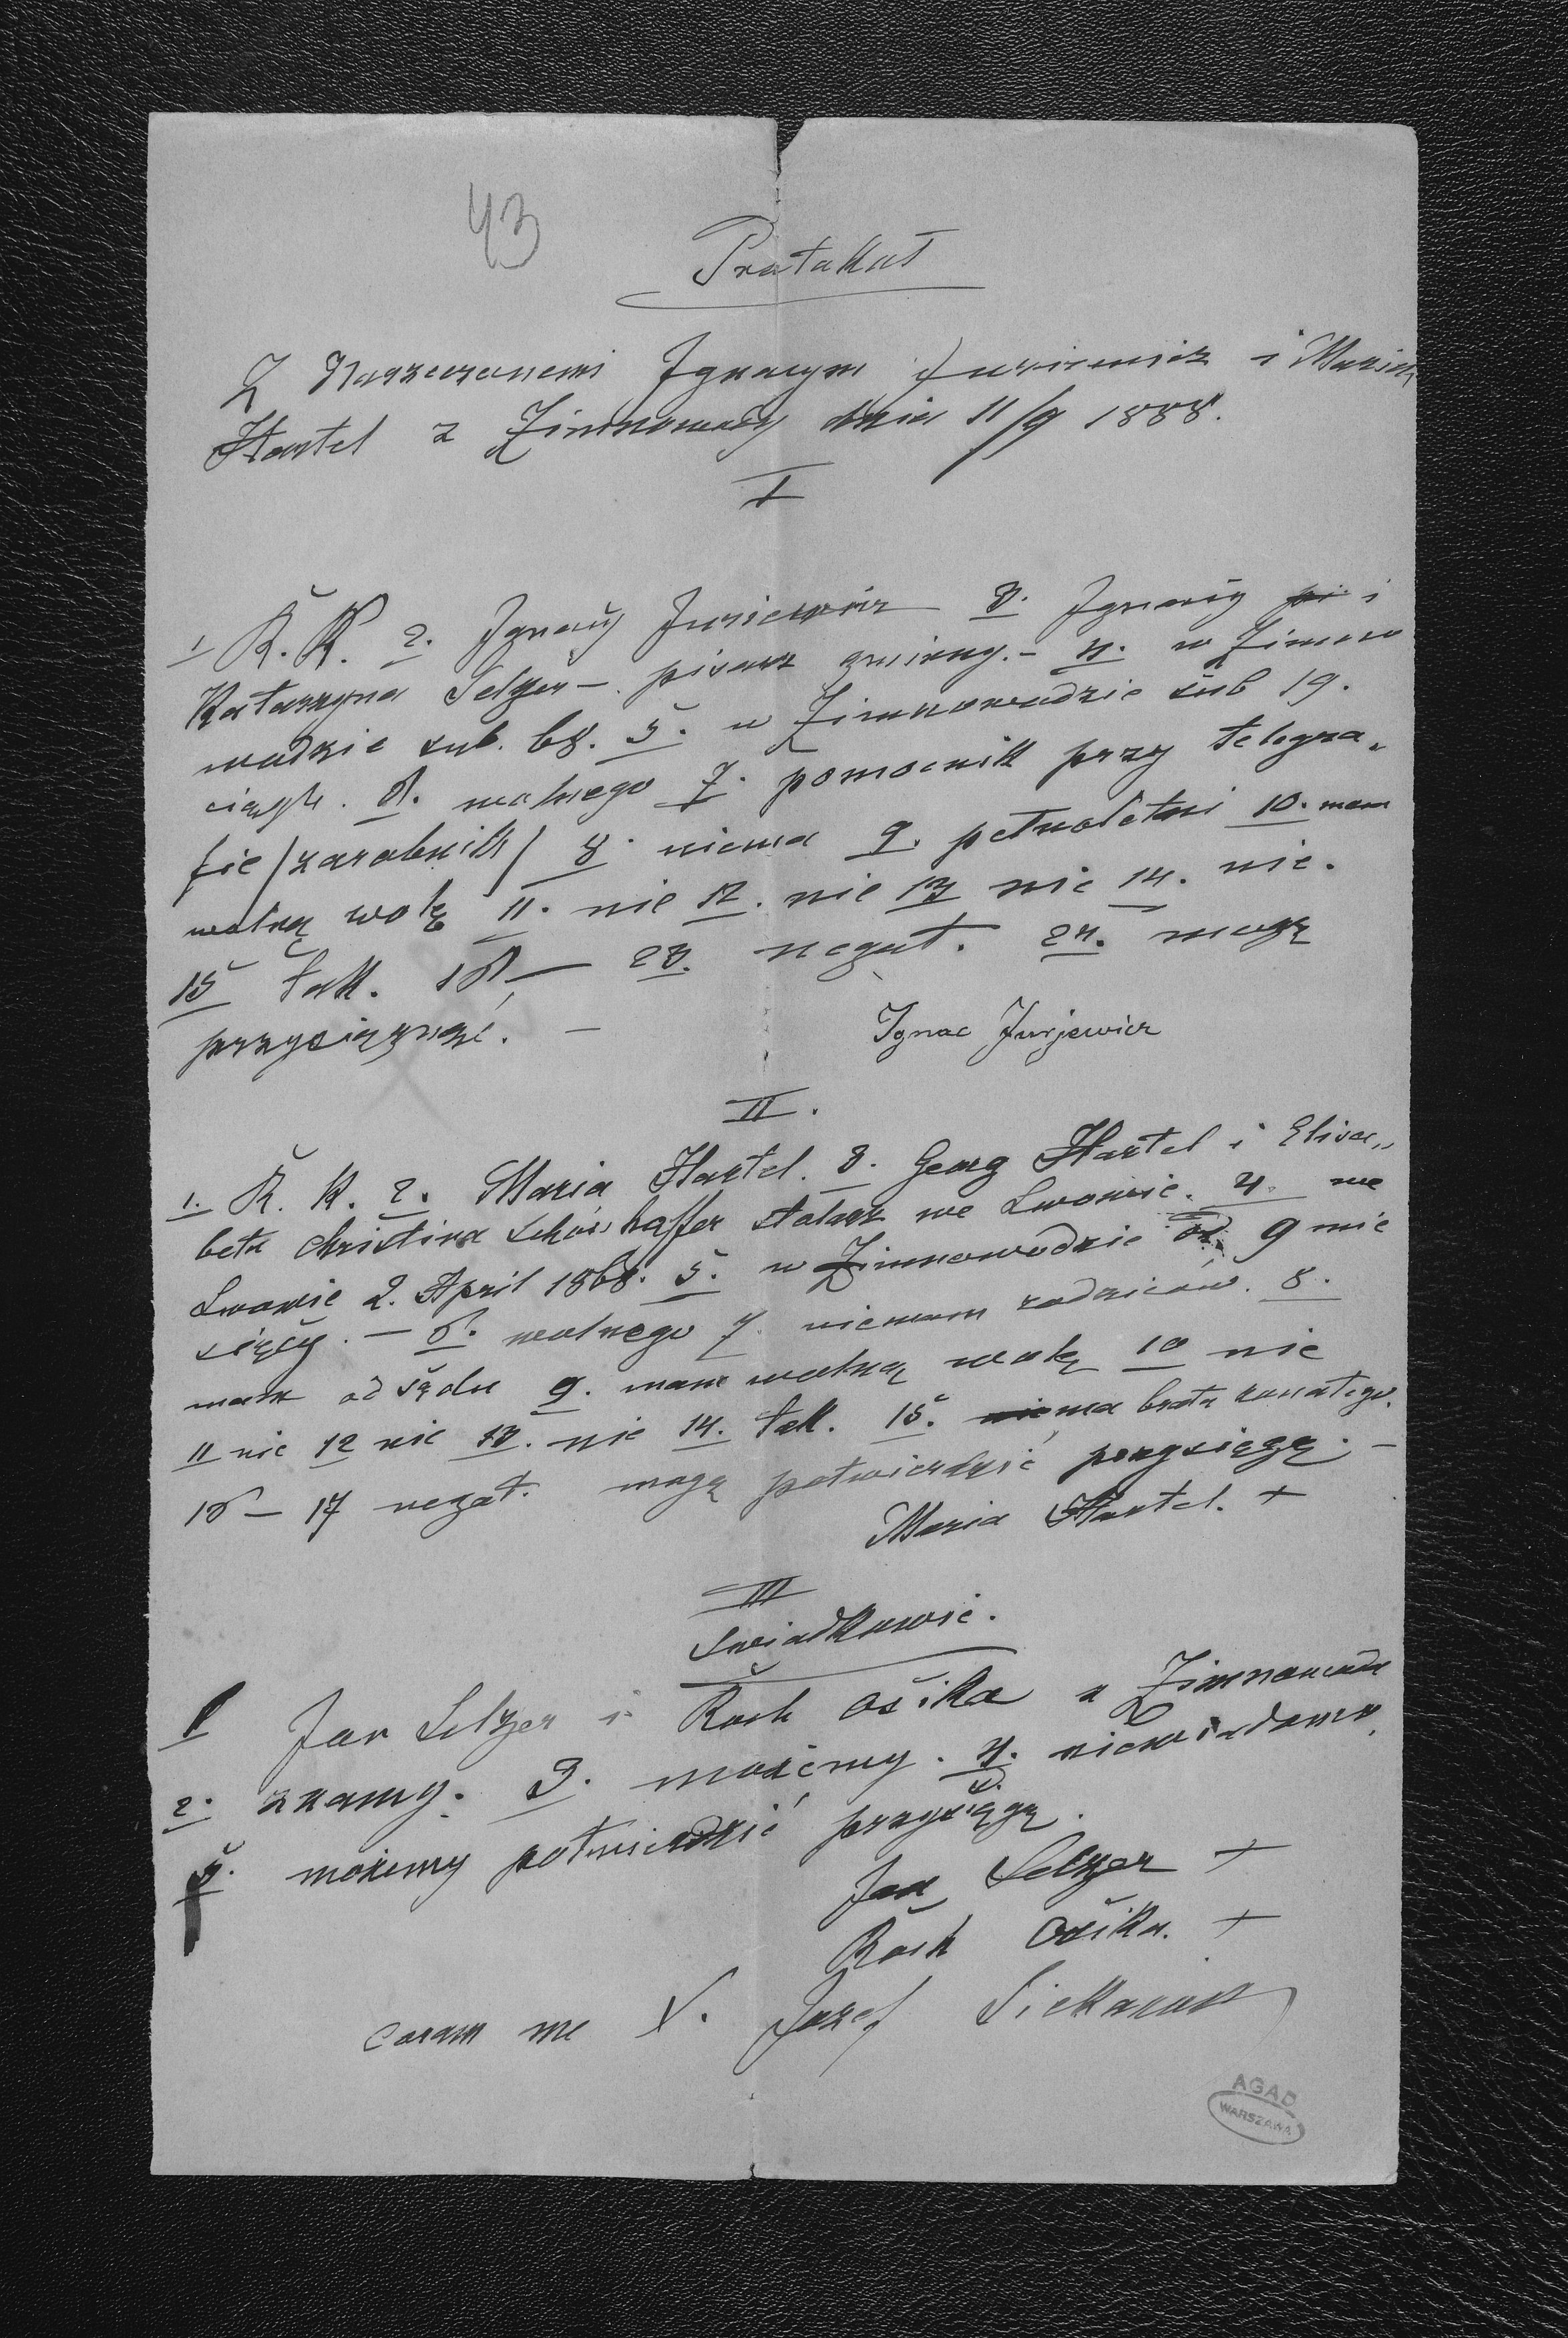 43
Protokół
Z Narzeczonemi Ignacym Juriewicz i Marią
Hartel z Zimnowody dnia 11/9 1888.
I
1 Ř. K. 2. Ignacy Juriewicz 3. Ignacy i
Katarzyna Selzer – pisarz gminny. – 4. w Zimno
wodzie sub. 68. 5. w Zimnowodzie sub 19.
ciągle. 6. wolnego 7. pomocnik przy telegra„
fie /zarobnik/ 8. niema 9. pełnoletni 10. mam
wolną wolę 11. nie 12. nie 13 nie 14. nie.
15 Tak. 16 — 23. negat. 24. mogę
przysięgnąć. —
Ignac Jurjewicz
II.
1. Ř. K. 2. Maria Hartel. 3. Georg Hartel i Elisa„
beta Christina Schöshaffer stolarz we Lwowie. 4. we
Lwowie 2. April 1868. 5. w Zimnowodzie od 9 mie
sięcy. – 6. wolnego 7. niemam rodziców. 8.
mam od sądu 9. mam wolną wolę 10 nie
11 nie 12 nie 13. nie 14. Tak. 15. ma brata
16 – 17 negat. mogę potwierdzić przysięgą. –
Maria Hartel. +
III
Swiadkowie.
1 Jan Selzer i Roch Osika z Zimnawoda
2. znamy. 3. możemy. 4. niewiadomo.
5. możemy potwierdzić przysięgą.
Jan Selzer +
Roch Osika. +
coram me X. Jozef
AGAD
WARSZAWA